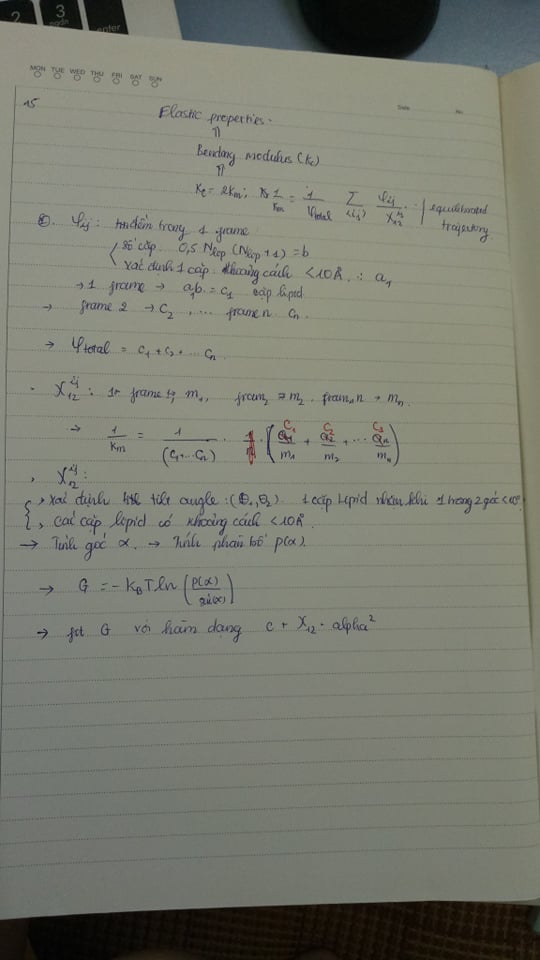 2 3 enter
MON TUE WED THU FRI SAT SUN
Date No
15
Elastic properties.
⇑
Bending modulus (Kc)
⇑
Kc = 2Km; 1/Km = 1/φtotal Σ<i,j> φij/X12^ij · | equilibrated trajectory.
φij: trong 1 frame:
{ số cặp. 0,5 Nlip (Nlip + 1) = b
xác định 1 cặp. khoảng cách < 10 Å. : a1
→ 1 frame → = c1 cặp lipid
→ frame 2 → C2 , .... frame n Cn.
→ φtotal = C1 + C2 + ... Cn.
- X12^ij : 1 frame m1, fram2 = m2. n → mn
→ 1/Km = 1/(C1+...Cn) · ( C1/m1 + C2/m2 + ... /mn )
, X12^ij :
{ > xác định tilt angle : (θ1, θ2). 1 cặp lipid khi 1 trong 2 góc < 10°
> các cặp lipid có khoảng cách < 10 Å.
→ Tính góc α. → Tính phân bố p(α).
→ G = - KB T ln ( P(α)/sin(α) )
→ fit G với hàm dạng c + X12 · alpha²